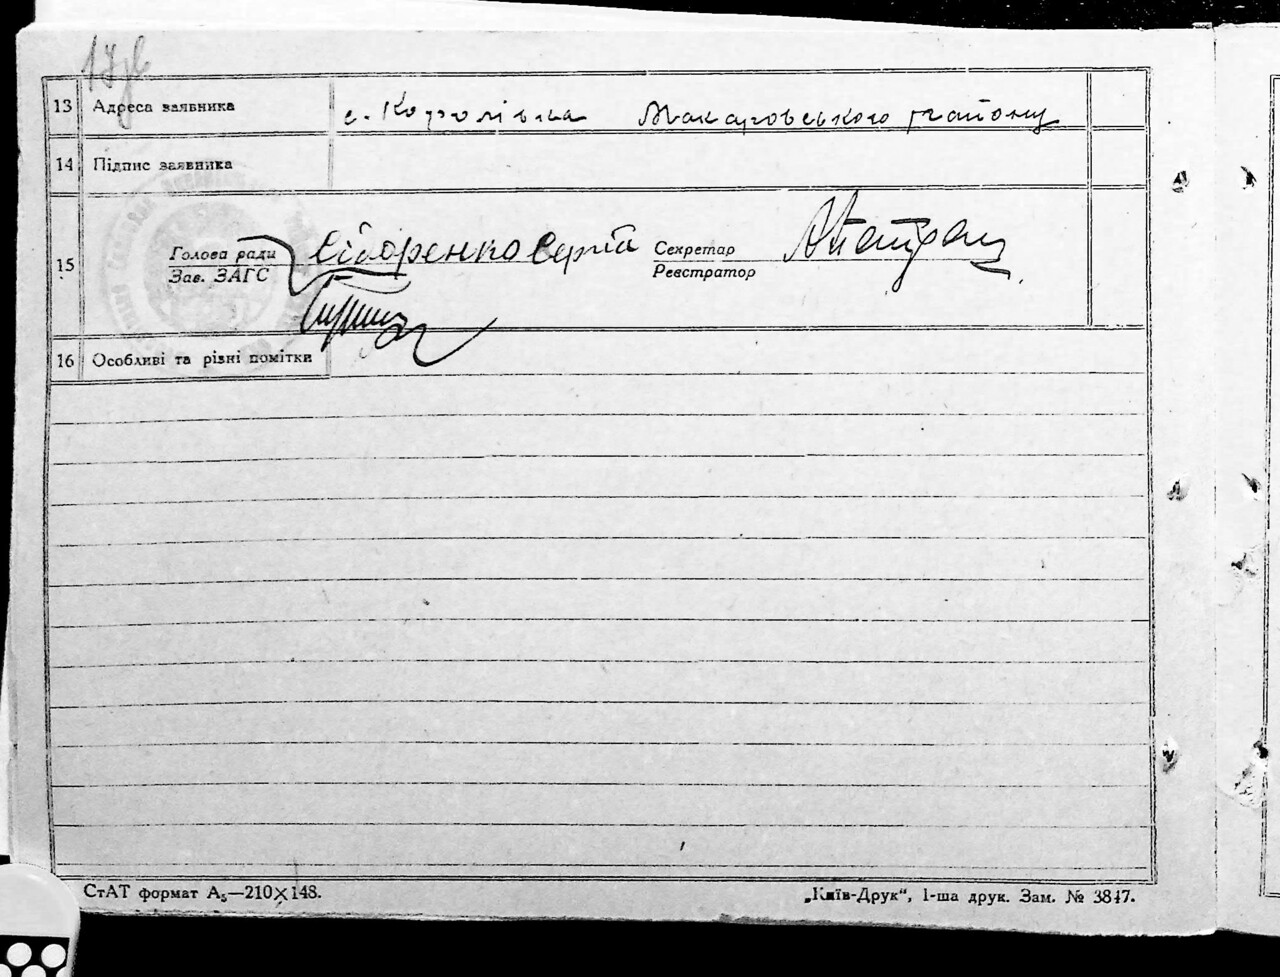 17зв
13 Адреса заявника с. Королівка Макаровського району
14 Підпис заявника
15 Голова ради Сідоренко Сергій Секретар
Зав. ЗАГС Реєстратор
16 Особливі та різні помітки
СтАТ формат А₅—210×148.
„Київ-Друк“, 1-ша друк. Зам. № 3847.